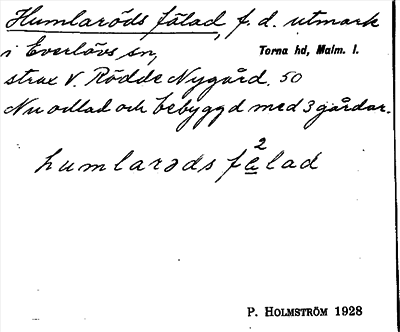 Humlaröds fälad, f. d. utmark
i Everlövs sn, Torna hd, Malm. l.
strax V. Rödde Nygård. 50
Nu odlad och bebyggd med 3 gårdar.
2
humlarəds falad
P. HOLMSTRÖM 1928